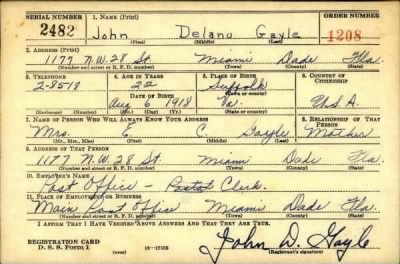 SERIAL NUMBER 1. NAME (Print) ORDER NUMBER
2482 John Delano Gayle 1208
(First) (Middle) (Last)
2. ADDRESS (Print)
1177 N.W. 28 St. Miami Dade Fla.
(Number and street or R. F. D. number) (Town) (County) (State)
3. TELEPHONE 4. AGE IN YEARS 5. PLACE OF BIRTH 6. COUNTRY OF CITIZENSHIP
2-8518 22 Suffolk
DATE OF BIRTH (Town or county)
Aug 6 1918 Va. U.S.A.
(Exchange) (Number) (Mo.) (Day) (Yr.) (State or country)
7. NAME OF PERSON WHO WILL ALWAYS KNOW YOUR ADDRESS 8. RELATIONSHIP OF THAT PERSON
Mrs. E. C. Gayle Mother
(Mr., Mrs., Miss) (First) (Middle) (Last)
9. ADDRESS OF THAT PERSON
1177 N.W. 28 St. Miami Dade Fla.
(Number and street or R. F. D. number) (Town) (County) (State)
10. EMPLOYER'S NAME
Post Office - Postal Clerk.
11. PLACE OF EMPLOYMENT OR BUSINESS
Main Post Office Miami Dade Fla.
(Number and street or R. F. D. number) (Town) (County) (State)
I AFFIRM THAT I HAVE VERIFIED ABOVE ANSWERS AND THAT THEY ARE TRUE.
REGISTRATION CARD
D. S. S. Form 1 (over) 16-17105 John D. Gayle
(Registrant's signature)